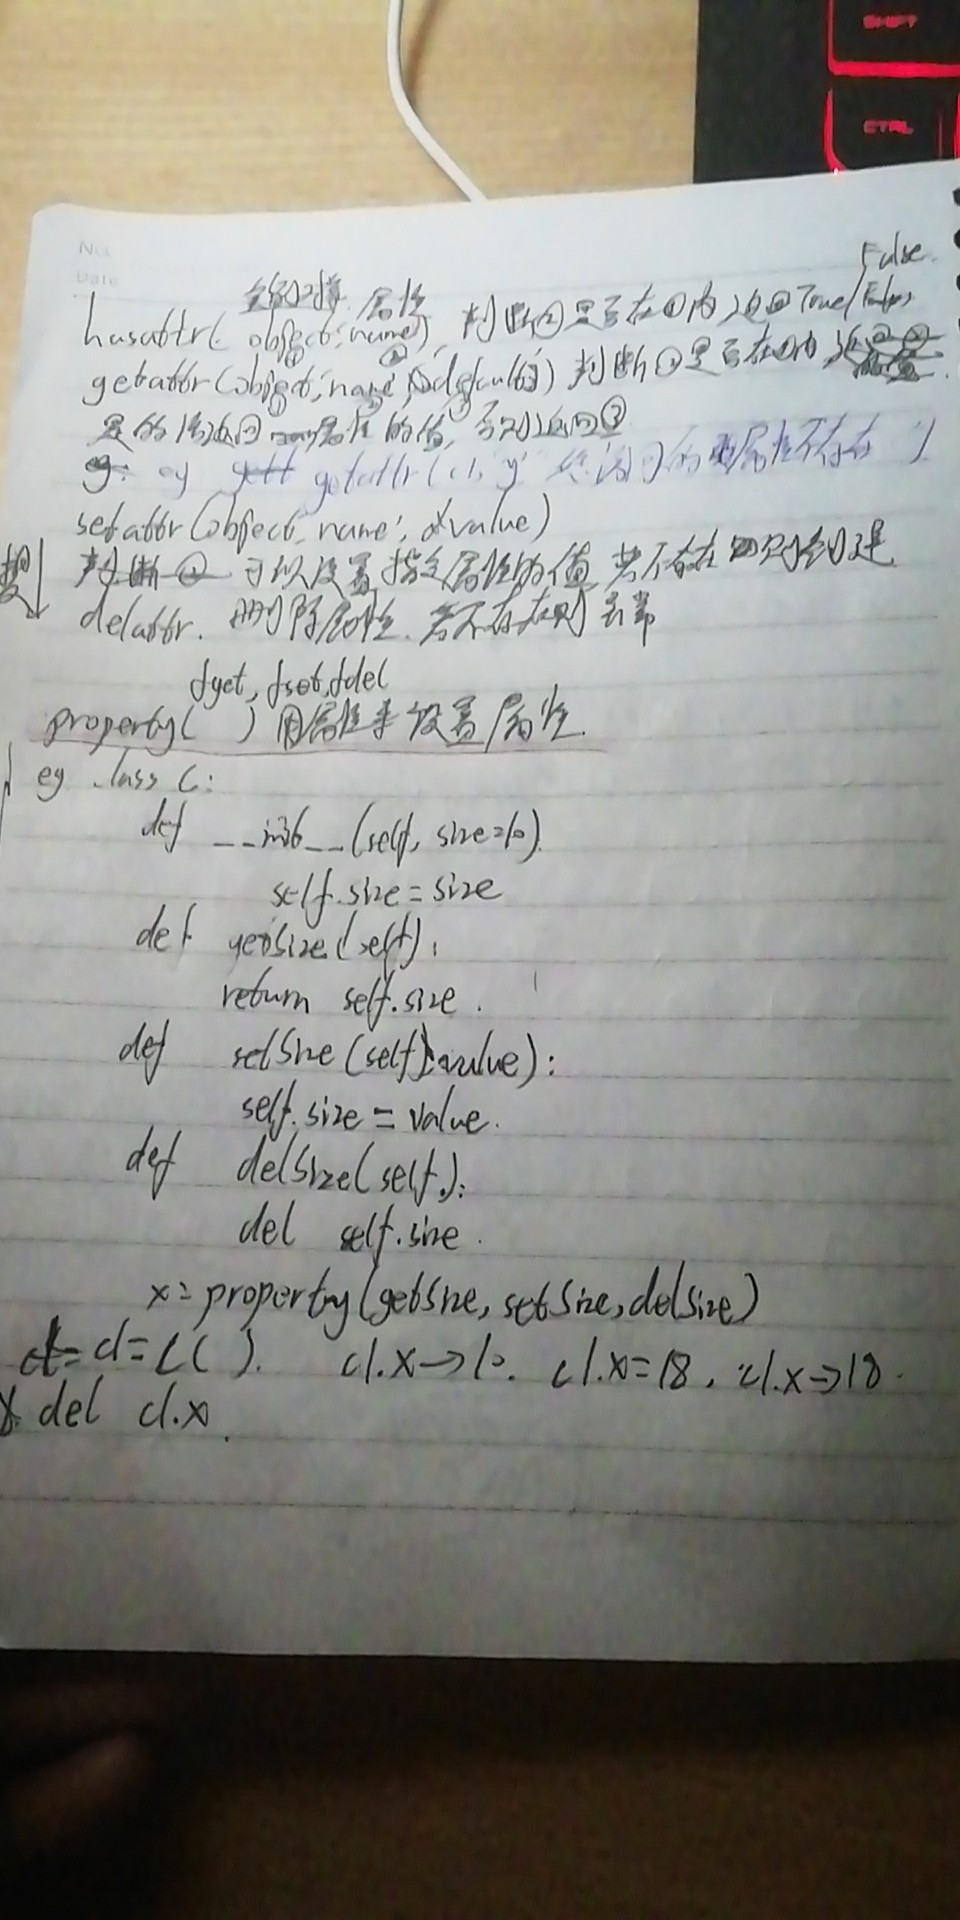 SHIFT
CTRL
No.
Date
False.
实例对象 属性
hasattr( object, 'name'), 判断②是否在①内 返回True/False
① ②
getattr(object, 'name', default) 判断②是否在①内
① ② ③
是的话返回属性的值, 否则返回③
eg: eg getattr(c1, 'y' 您访问的属性不存在 ')
setattr(object, 'name', value)
判断② 可以设置指定属性的值 若不存在则创建
delattr. 删除属性. 若不存在则异常
fget, fset, fdel
property( ) 用属性来设置属性.
eg class C:
def __init__(self, size=10)
self.size = size
def getSize(self):
return self.size.
def setSize(self, value):
self.size = value.
def delSize(self):
del self.size.
x = property(getSize, setSize, delSize)
c1 = c1 = C( ). c1.x → 10. c1.x = 18, c1.x → 18.
del c1.x.